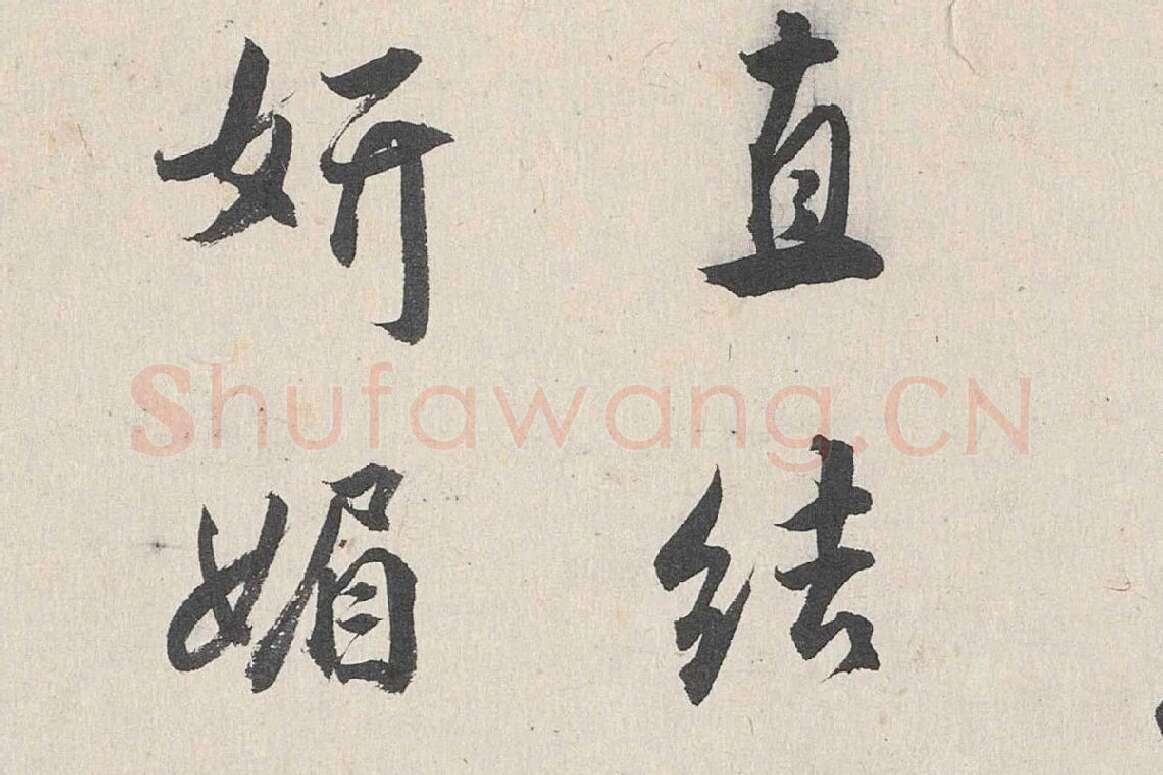 直结
妍媚
Shufawang.CN